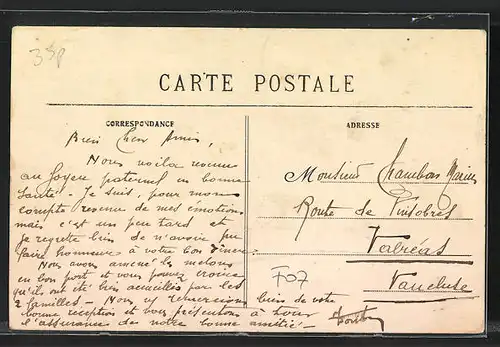 33p
CARTE POSTALE
CORRESPONDANCE
ADRESSE
Bien Cher Amis,
Nous voila revenu
au foyer paternel en bonne
Santé - Je suis, pour mon
compte revenu de mes émotions
mais c'est un peu tard et
je regrette bien de n'avoir pu
faire honneur à votre bon diner
Nous avons amené les melons
en bon port et vous pouvez croire
qu'ils ont été bien accueillis par les
2 familles - Nous vs remercions bien de votre
bonne reception et vous présentons à tous
l'assurance de notre bonne amitié -
Monsieur Chambon Marius
Route de Vinsobres
Valréas
Vaucluse
F07